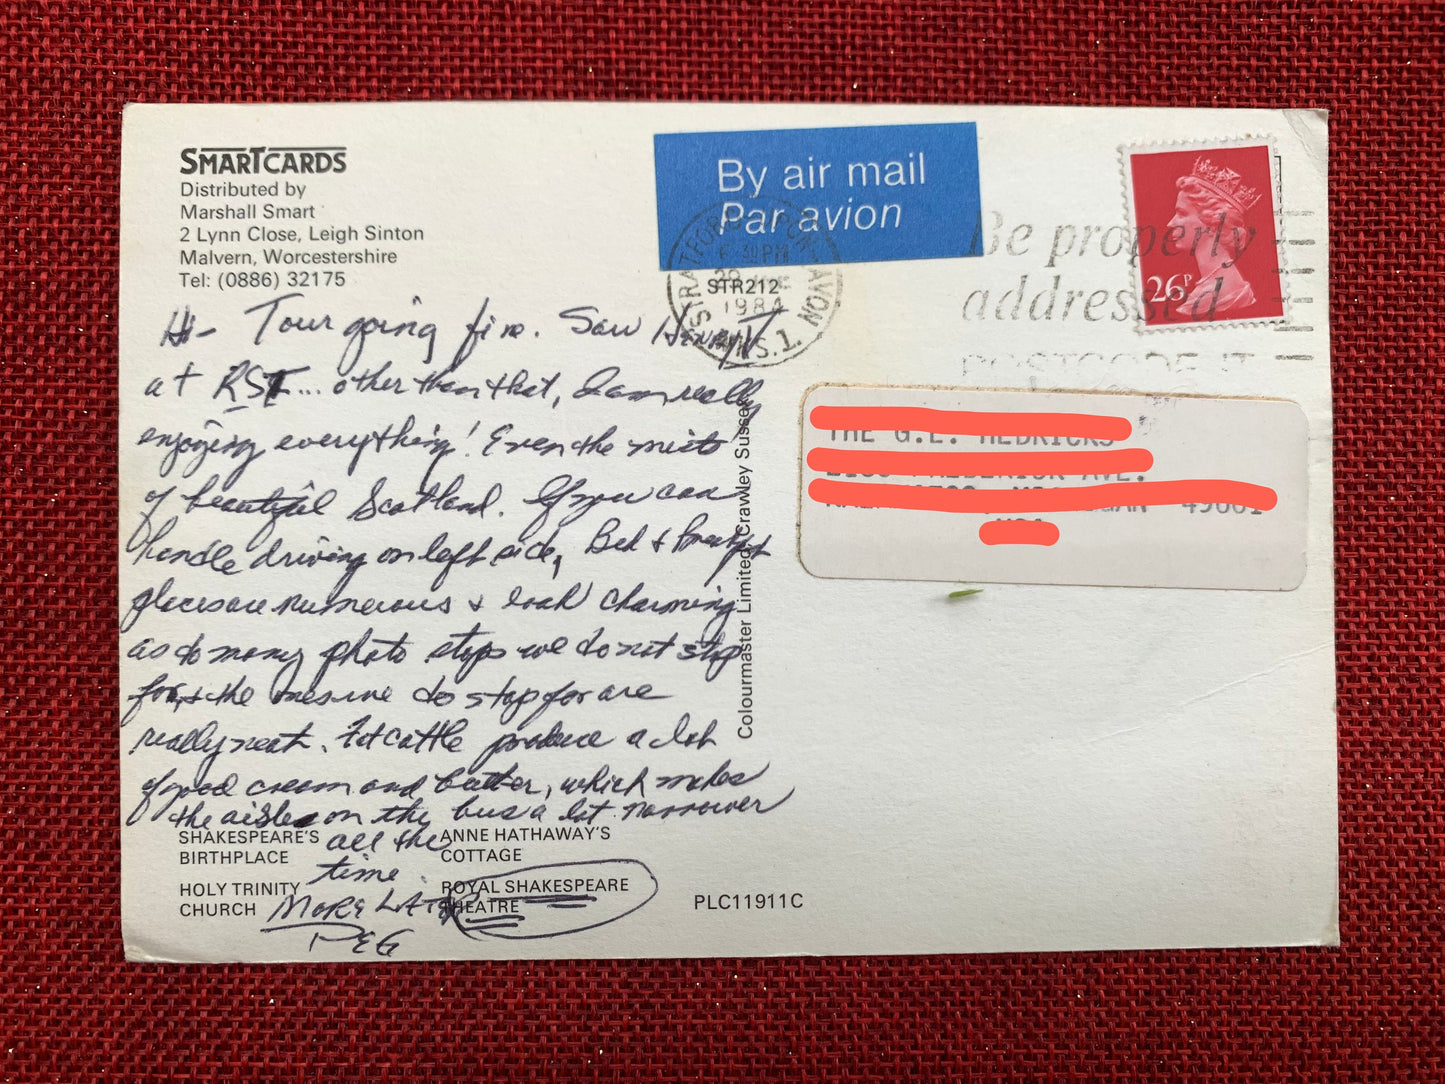 SMARTCARDS
Distributed by
Marshall Smart
2 Lynn Close, Leigh Sinton
Malvern, Worcestershire
Tel: (0886) 32175
By air mail
Par avion
STRATFORD UPON AVON
6 30 PM
1984
STR212
Be properly
addressed
POSTCODE IT
26P
Hi - Tour going fine. Saw Henry V
at RST... other than that, I am really
enjoying everything! Even the mists
of beautiful Scotland. If you can
handle driving on left side, Bed &
places are numerous & look charming
as do many photo stops we do not stop
for, & the ones we do stop for are
really neat. Fat cattle produce a lot
of good cream and butter, which makes
the aisle on the bus a lot narrower
all the
time.
MORE LATER
PEG
SHAKESPEARE'S
BIRTHPLACE
ANNE HATHAWAY'S
COTTAGE
HOLY TRINITY
CHURCH
ROYAL SHAKESPEARE
THEATRE
PLC11911C
Colourmaster Limited, Crawley Sussex
THE G.E. HEDRICKS
AVE.